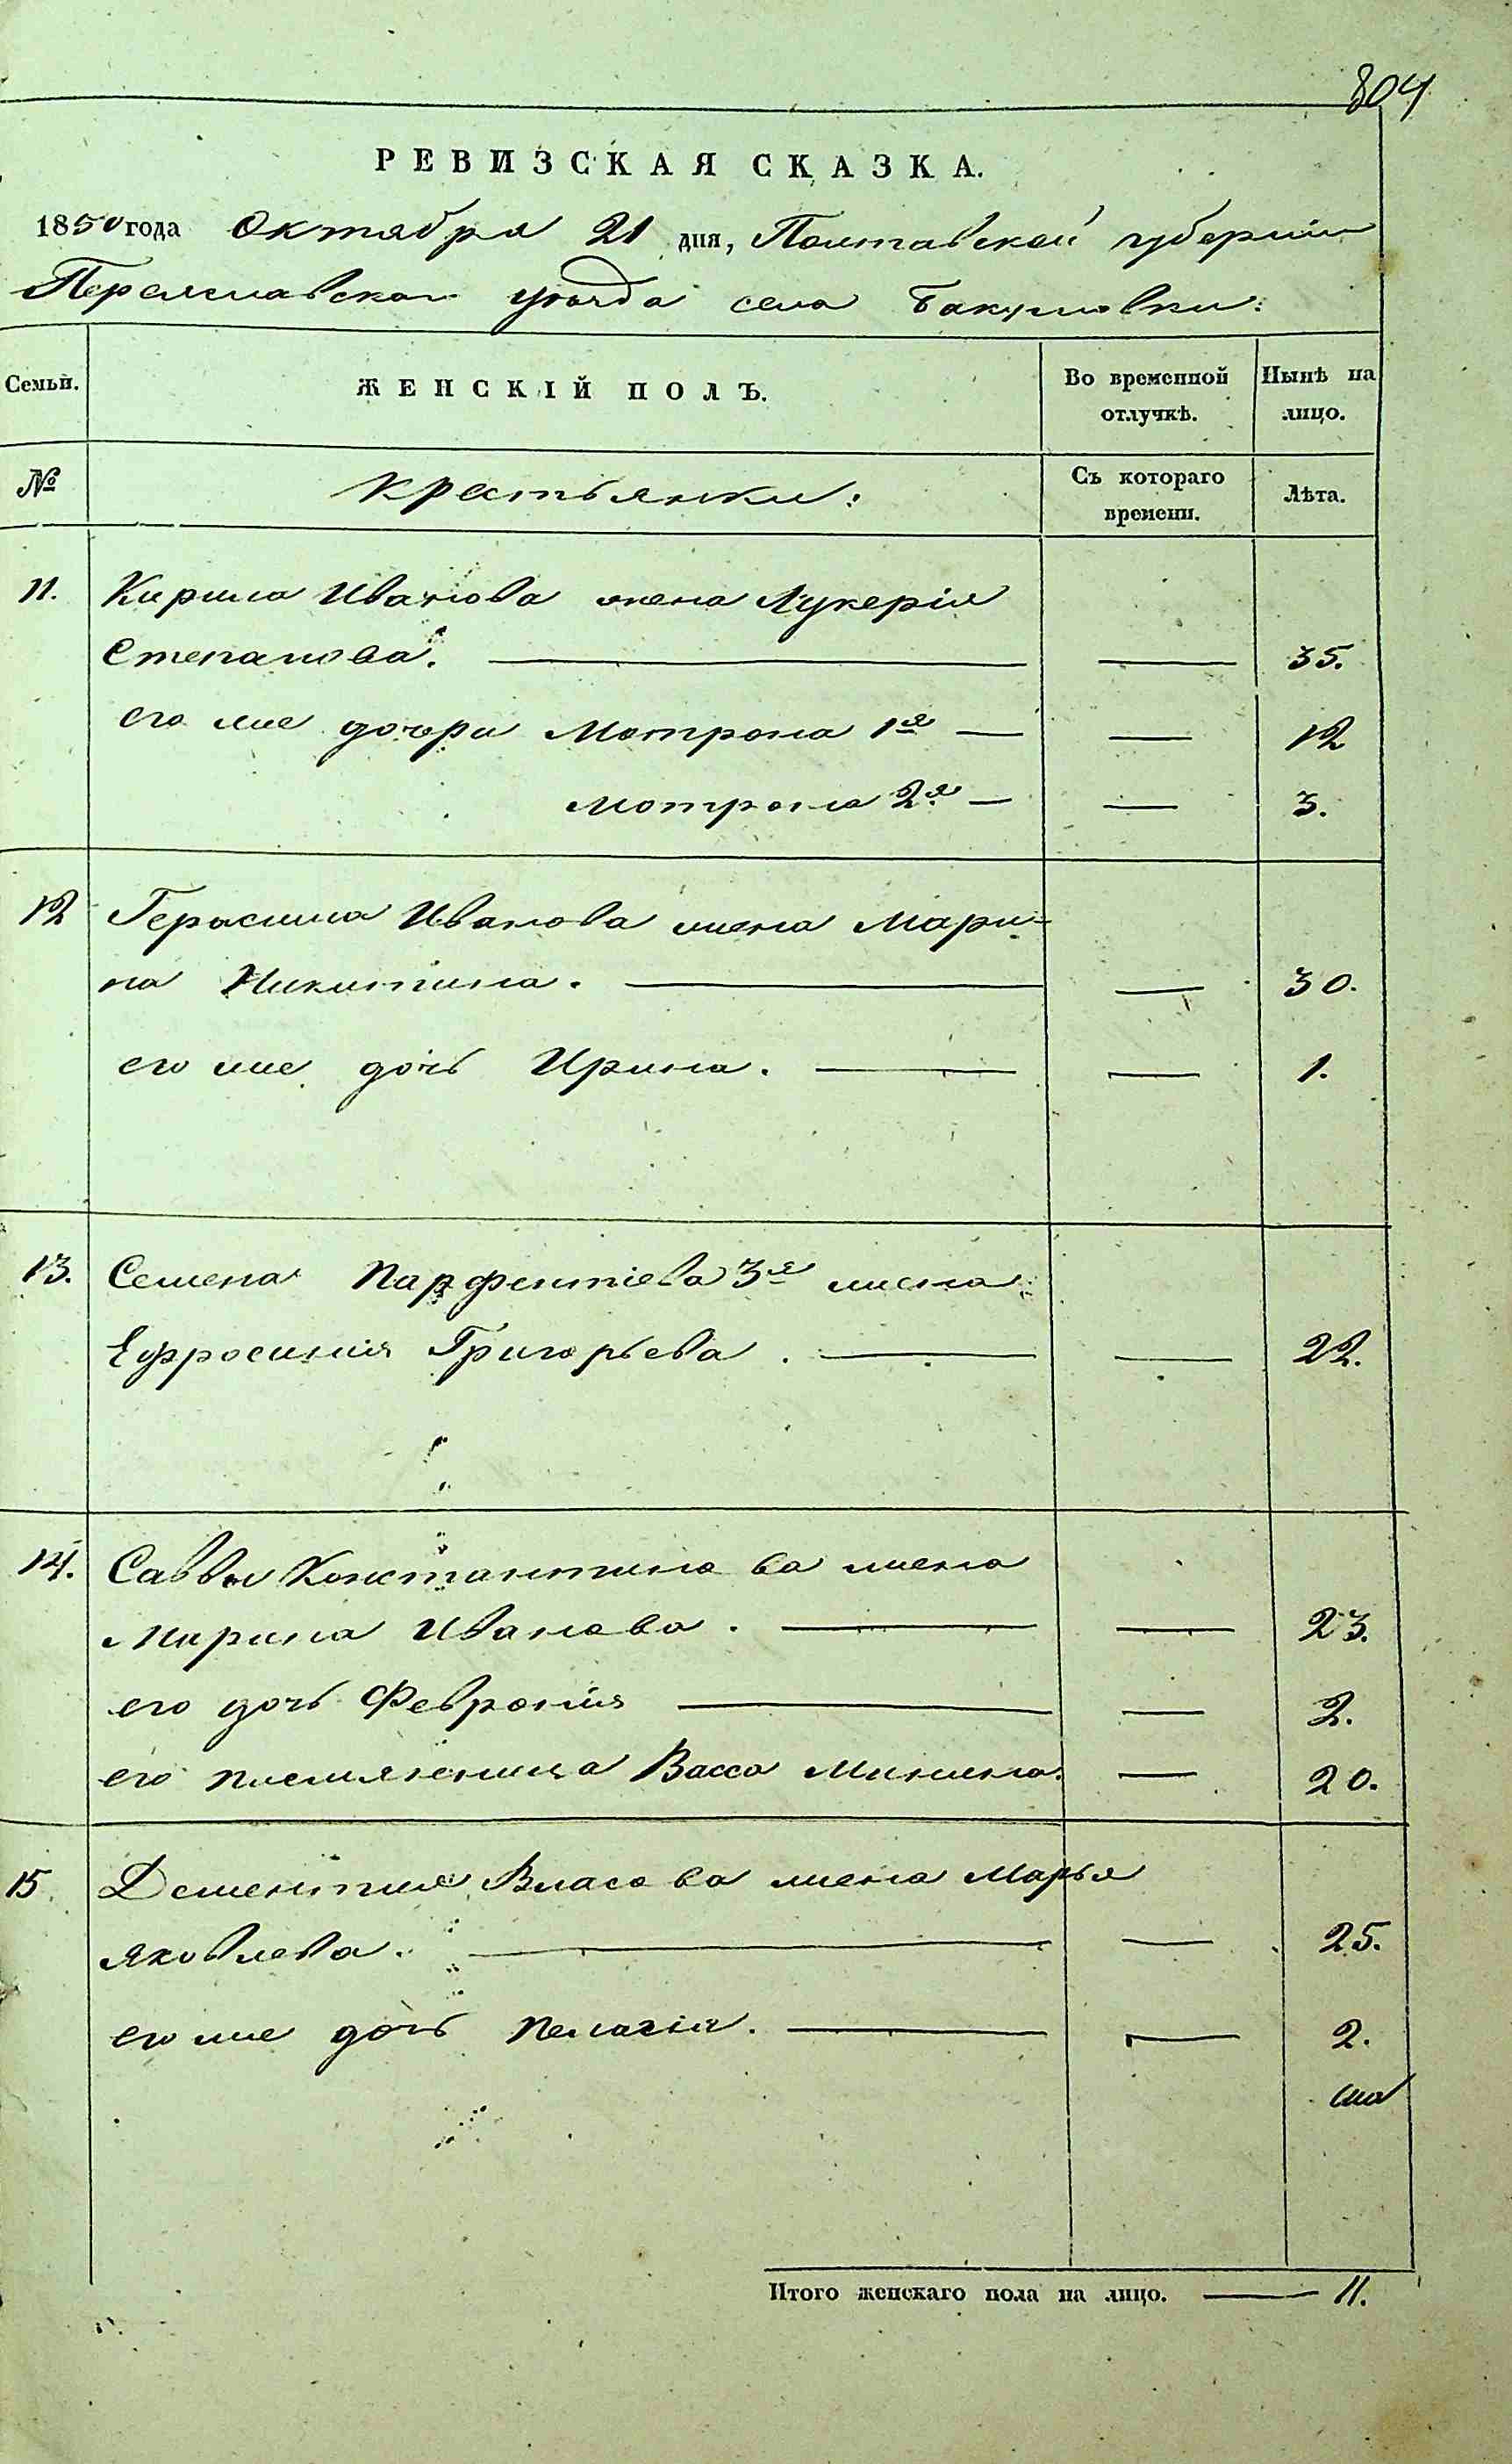 804
РЕВИЗСКАЯ СКАЗКА.
1850 года Октября 21 дня, Полтавской губернии
Переяславскаго уезда села Бакумовки:
Семьи. ЖЕНСКІЙ ПОЛЪ. Во временной отлучкѣ. Нынѣ на лицо.
№ Крестьянки: Съ котораго времени. Лѣта.
11. Кирила Иванова жена Лукерія
Степанова. — — 35.
его же дочери Мотрона 1я — — 12
Мотрона 2я — — 3.
12 Герасима Иванова жена Мари-
на Никитина. — — 30.
его же дочь Ирина. — — 1.
13. Семена Парфентіева 3я жена
Ефросинія Григорьева. — — 22.
14. Саввы Константинова жена
Марина Иванова. — — 23.
его дочь Февронія — — 2.
его племяненица Васса Минина. — 20.
15. Дементия Власова жена Марья
Яковлева. — — 25.
его же дочь Пелагія. — — 2.
Итого женскаго пола на лицо. — 11.